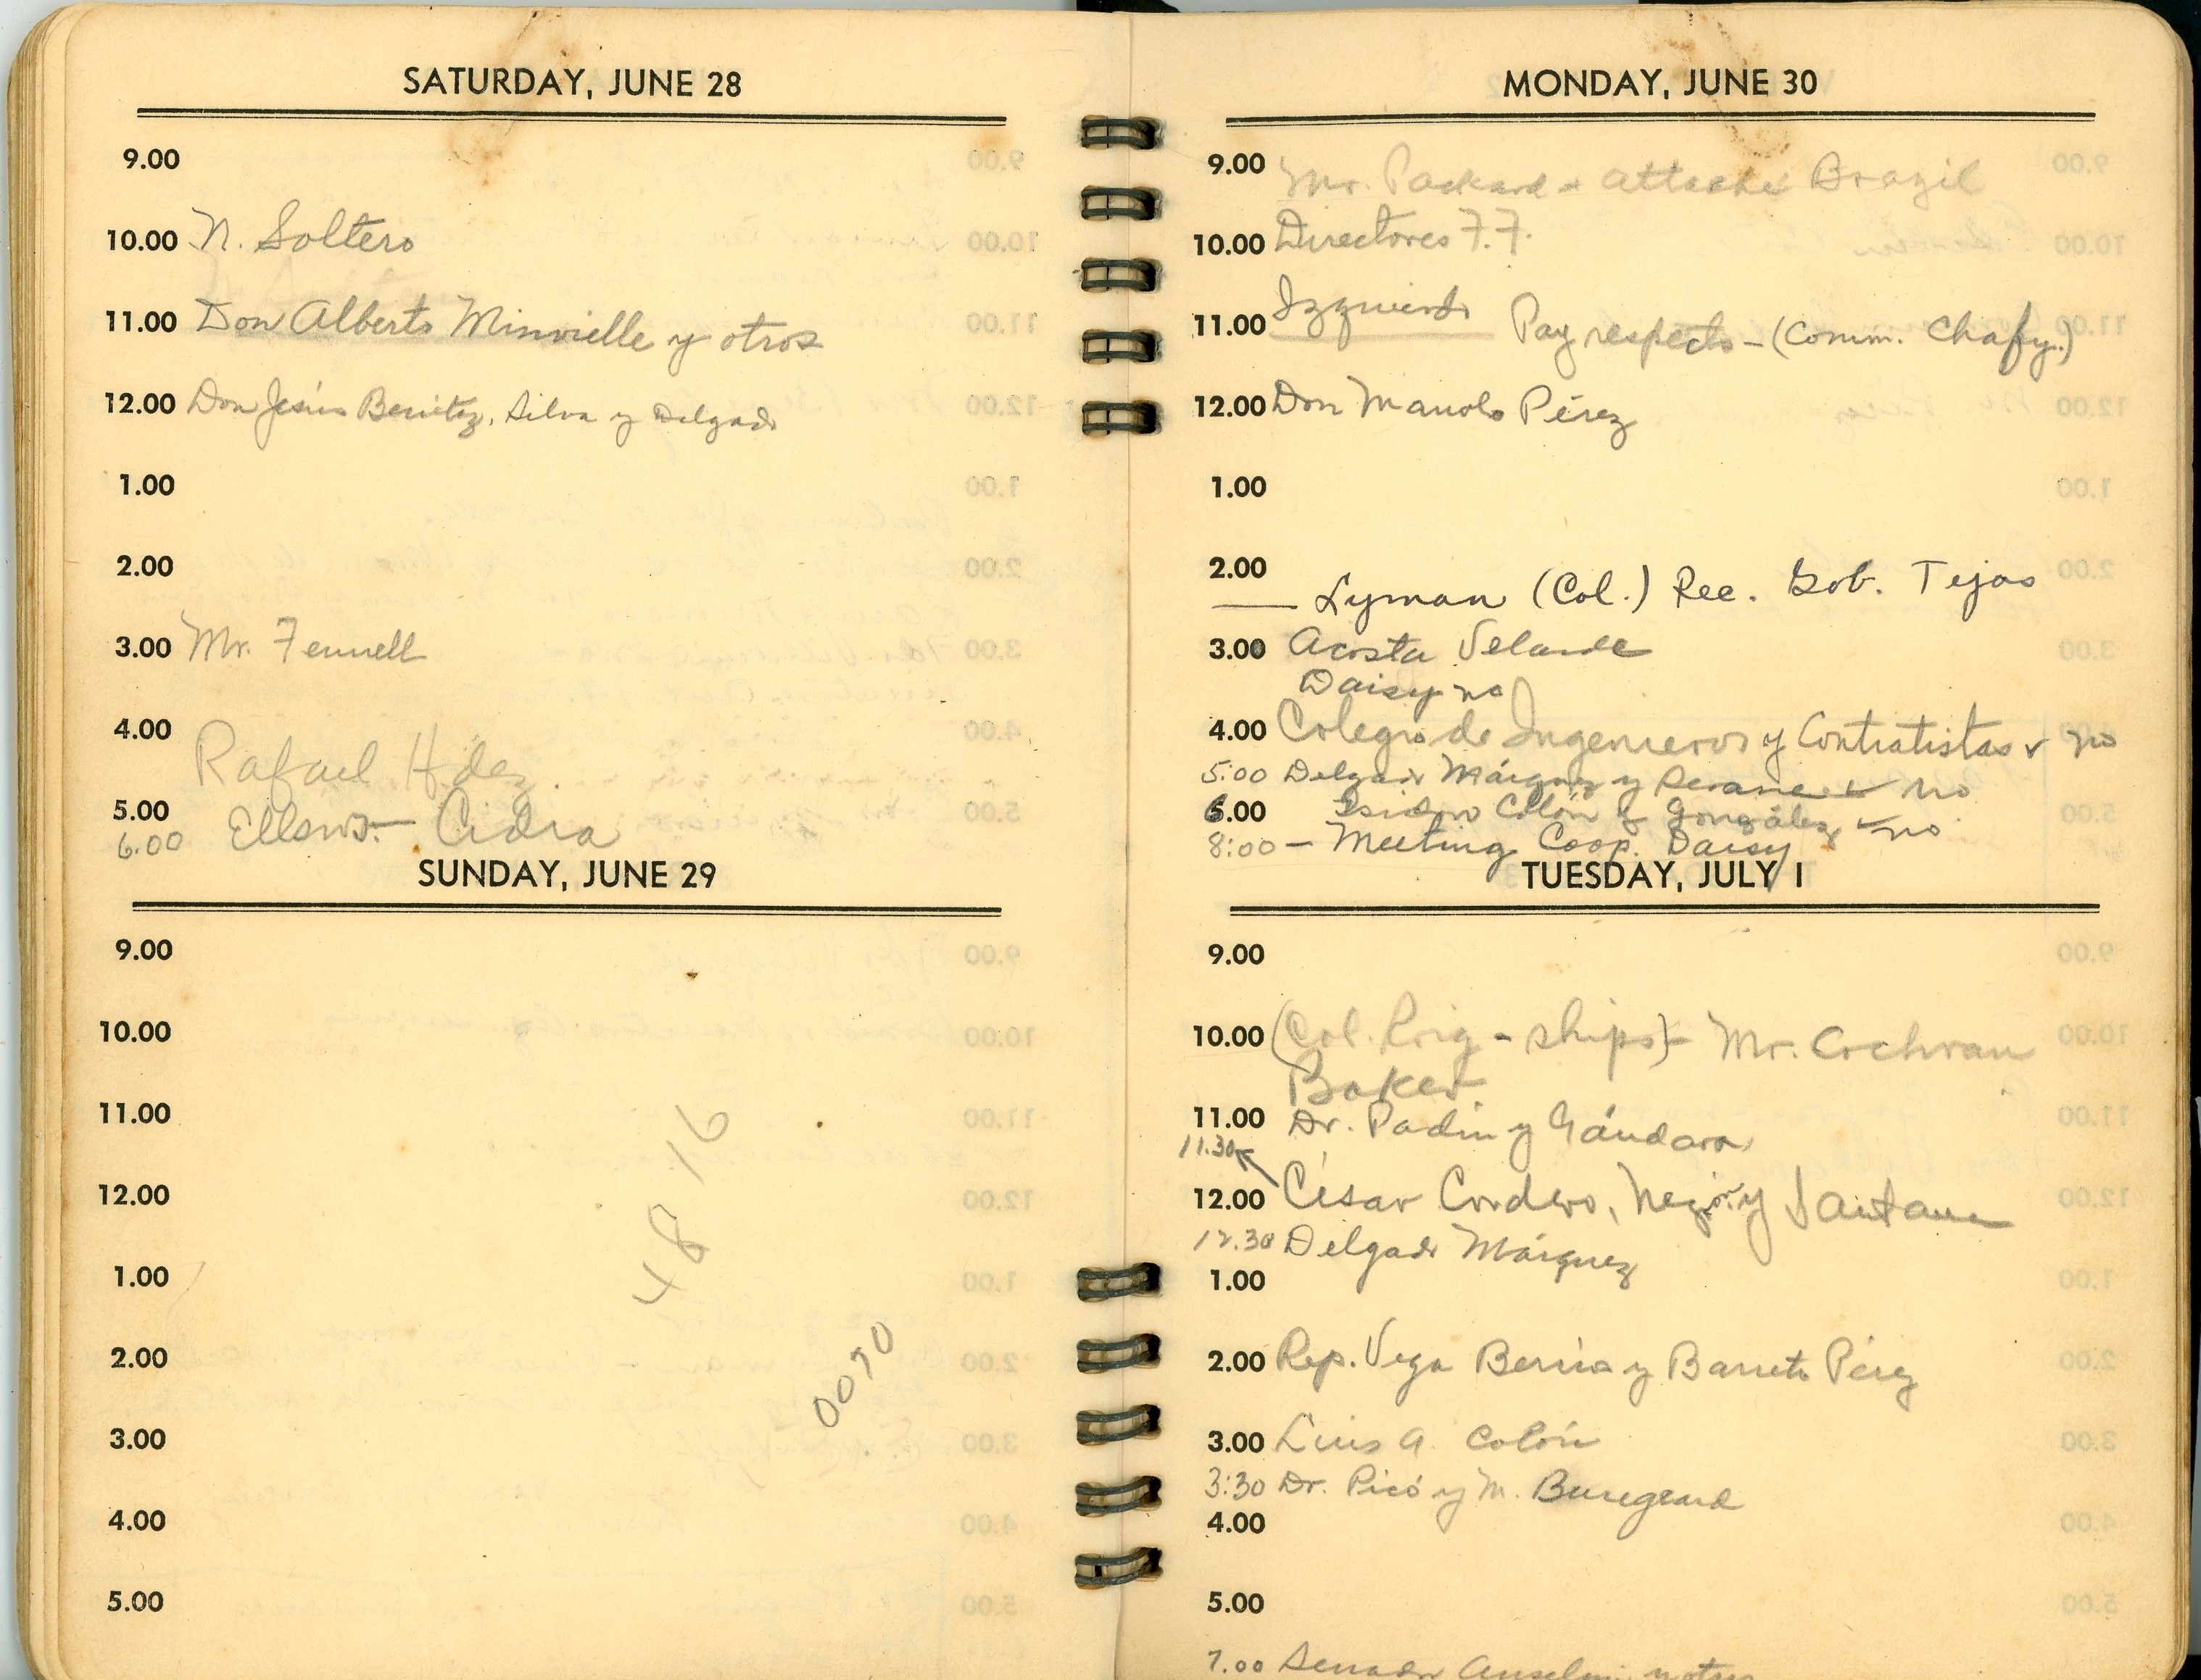 SATURDAY, JUNE 28
9.00
10.00 N. Soltero
11.00 Don Alberto Minvielle y otros
12.00 Don Jesús Benítez, Silva y Delgado
1.00
2.00
3.00 Mr. Fennell
4.00
Rafael Hdez.
5.00
6.00 Ellsws.— Cidra
SUNDAY, JUNE 29
9.00
10.00
11.00
12.00
1.00
2.00
3.00
4.00
5.00
48 16
0070
MONDAY, JUNE 30
9.00 Mr. Packard - attaché Brazil
10.00 Directores F.F.
11.00 Izquierdo Pay respects - (Comm. Chafy.)
12.00 Don Manolo Pérez
1.00
2.00
— Lyman (Col.) Rec. Gob. Tejas
3.00 Acosta Velarde
Daisy no
4.00 Colegio de Ingenieros y Contratistas no
5:00 Delgado Márquez y no
6.00 Isidro Colón y González no
8:00 — Meeting Coop. Daisy
TUESDAY, JULY 1
9.00
10.00 (Col. Roig - ships) - Mr. Cochran
Baker
11.00 Dr. Padín y Gándara
11.30
12.00 César Cordero, y Santana
12.30 Delgado Márquez
1.00
2.00 Rep. Vega Berríos y Barreto Pérez
3.00 Luis A. Colón
3:30 Dr. Picó y M.
4.00
5.00
7.00 Senador Anselmi y otros